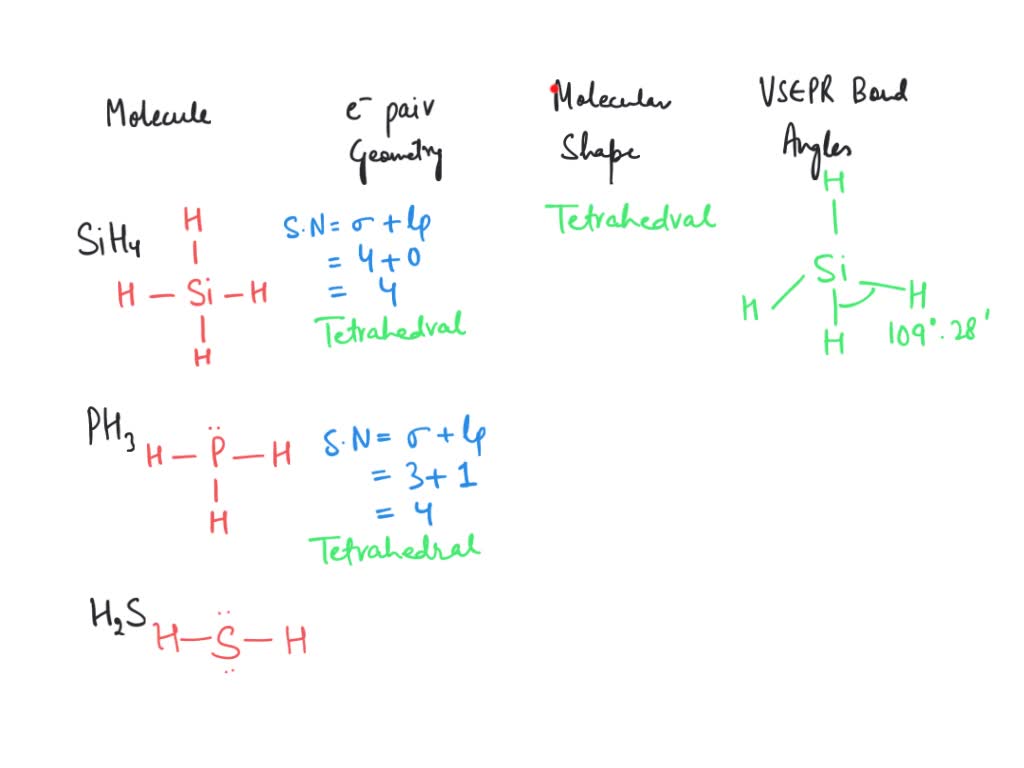 Molecule
e⁻ pair
Geometry
Molecular
Shape
VSEPR Bond
Angles
SiH₄
H
H – Si – H
H
S.N = σ + lp
= 4 + 0
= 4
Tetrahedral
Tetrahedral
H
Si
H
H
H
109°.28'
PH₃
H – P̈ – H
H
S.N = σ + lp
= 3 + 1
= 4
Tetrahedral
H₂S
H – S – H